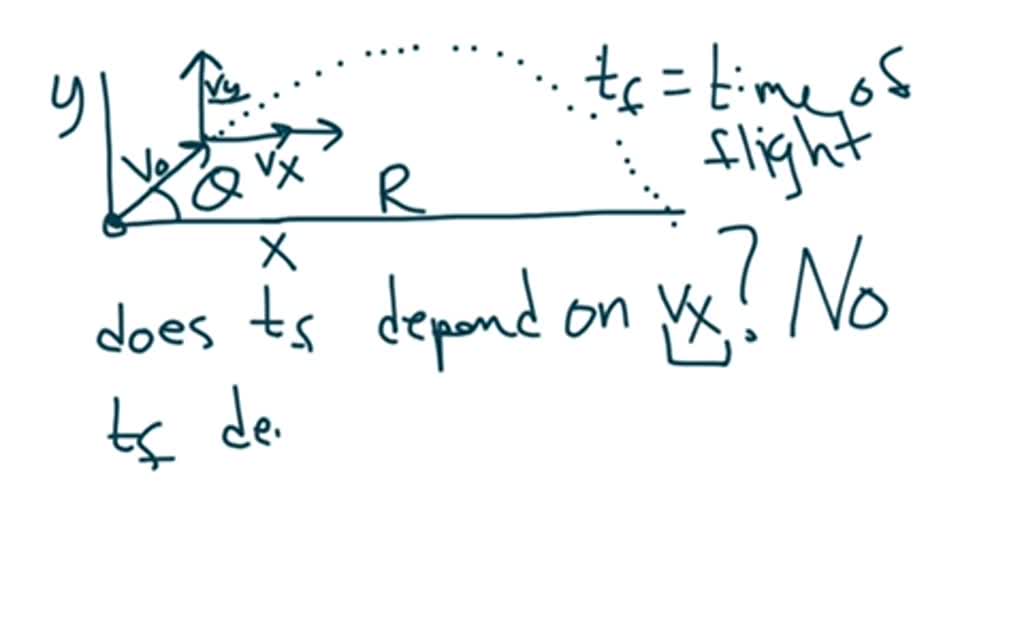 y
vy
t_f = time of
flight
v_0
θ
v_x
R
x
does t_f depend on v_x? No
t_f de